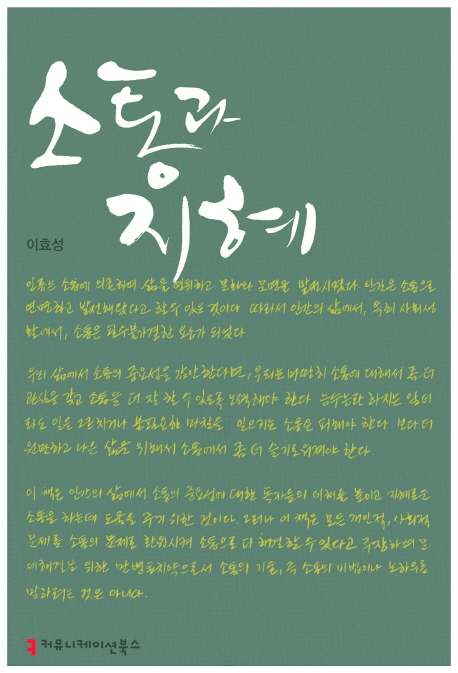 소통과
지혜
이효성
인류는 소통에 의존하여 삶을 영위하고 문화와 문명을 발전시켰다. 인간은 소통으로
연명하고 발전해왔다고 할 수 있는 것이다. 따라서 인간의 삶에서, 특히 사회생
활에서, 소통은 필수불가결한 요소가 되었다.
우리 삶에서 소통의 중요성을 감안한다면, 우리는 마땅히 소통에 대해서 좀 더
관심을 갖고 소통을 더 잘 할 수 있도록 노력해야 한다. 능수능란 하지는 않더
라도 일을 그르치거나 불필요한 마찰을 일으키는 소통은 피해야 한다. 보다 더
원만하고 나은 삶을 위해서 소통에서 좀 더 슬기로워져야 한다.
이 책은 인간의 삶에서 소통의 중요성에 대한 독자들의 이해를 높이고 지혜로운
소통을 하는데 도움을 주기 위한 것이다. 그러나 이 책은 모든 개인적, 사회적
문제를 소통의 문제로 환원시켜 소통으로 다 해결할 수 있다고 주장하며 문
제해결을 위한 만병통치약으로서 소통의 기술, 즉 소통의 비법이나 노하우를
말하려는 것은 아니다.
커뮤니케이션북스